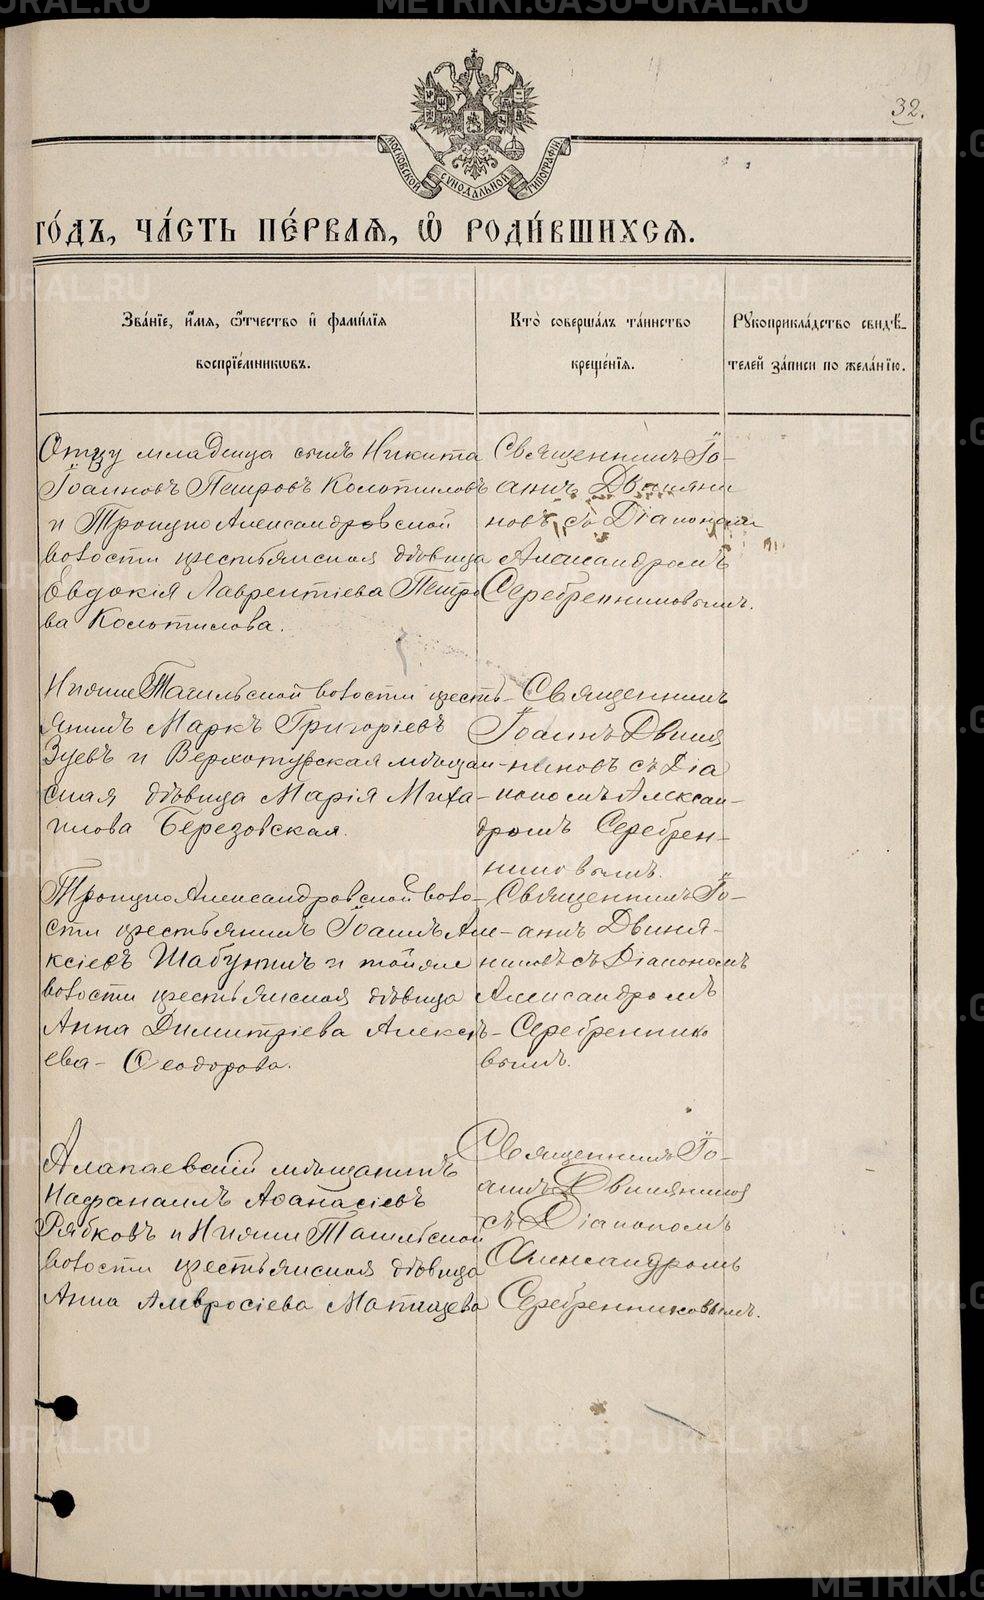 32.
МОСКОВСКОЙ СѴНОДАЛЬНОЙ ТИПОГРАФІИ
го́дъ, ча́сть пе́рваѧ, ѡ҆ роди́вшихсѧ.
Зва́нїе, и҆́мѧ, ѻ҆́тчество и҆ фами́лїѧ
воспрїе́мникѡвъ.
Кто̀ соверша́лъ та́инство
креще́нїѧ.
Рꙋкоприкла́дство свидѣ́-
телей за́писи по жела́нїю.
Отцу младенца сынъ Никита
Іоанновъ Петровъ Колотиловъ
и Троицко Александровской
волости крестьянская дѣвица
Евдокія Лаврентіева Петро
ва Колотилова.
Священникъ Іо-
аннъ Двиняни
новъ съ Діакономъ
Александромъ
Серебренниковымъ.
Нижне Тагильской волости кресть-
янинъ Маркъ Григоріевъ
Зуевъ и Верхотурская мѣщан-
ская дѣвица Марія Миха-
илова Березовская.
Священникъ
Іоаннъ Двиня
ниновъ съ Діа
кономъ Алексан-
дромъ Серебрен-
никовымъ.
Троицко Александровской воло-
сти крестьянинъ Іоаннъ Але-
ксіевъ Шабунинъ и той же
волости крестьянская дѣвица
Анна Димитріева Алексѣ-
ева - Ѳеодорова.
Священникъ Іо-
аннъ Двиня-
ниновъ съ Діакономъ
Александромъ
Серебреннико
вымъ.
Алапаевскій мѣщанинъ
Нафанаилъ Аѳанасіевъ
Рябковъ и Нижне Тагильской
волости крестьянская дѣвица
Анна Амвросіева Матицева
Священникъ Іо-
аннъ Двиняниновъ
съ Діакономъ
Александромъ
Серебренниковымъ.
METRIKI.GASO-URAL.RU